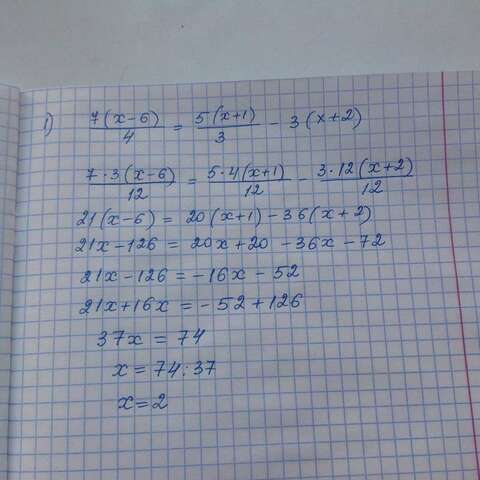 1) 7(x-6)/4 = 5(x+1)/3 - 3(x+2)
7·3(x-6)/12 = 5·4(x+1)/12 - 3·12(x+2)/12
21(x-6) = 20(x+1)-36(x+2)
21x-126 = 20x+20-36x-72
21x-126 = -16x-52
21x+16x = -52+126
37x = 74
x = 74:37
x=2